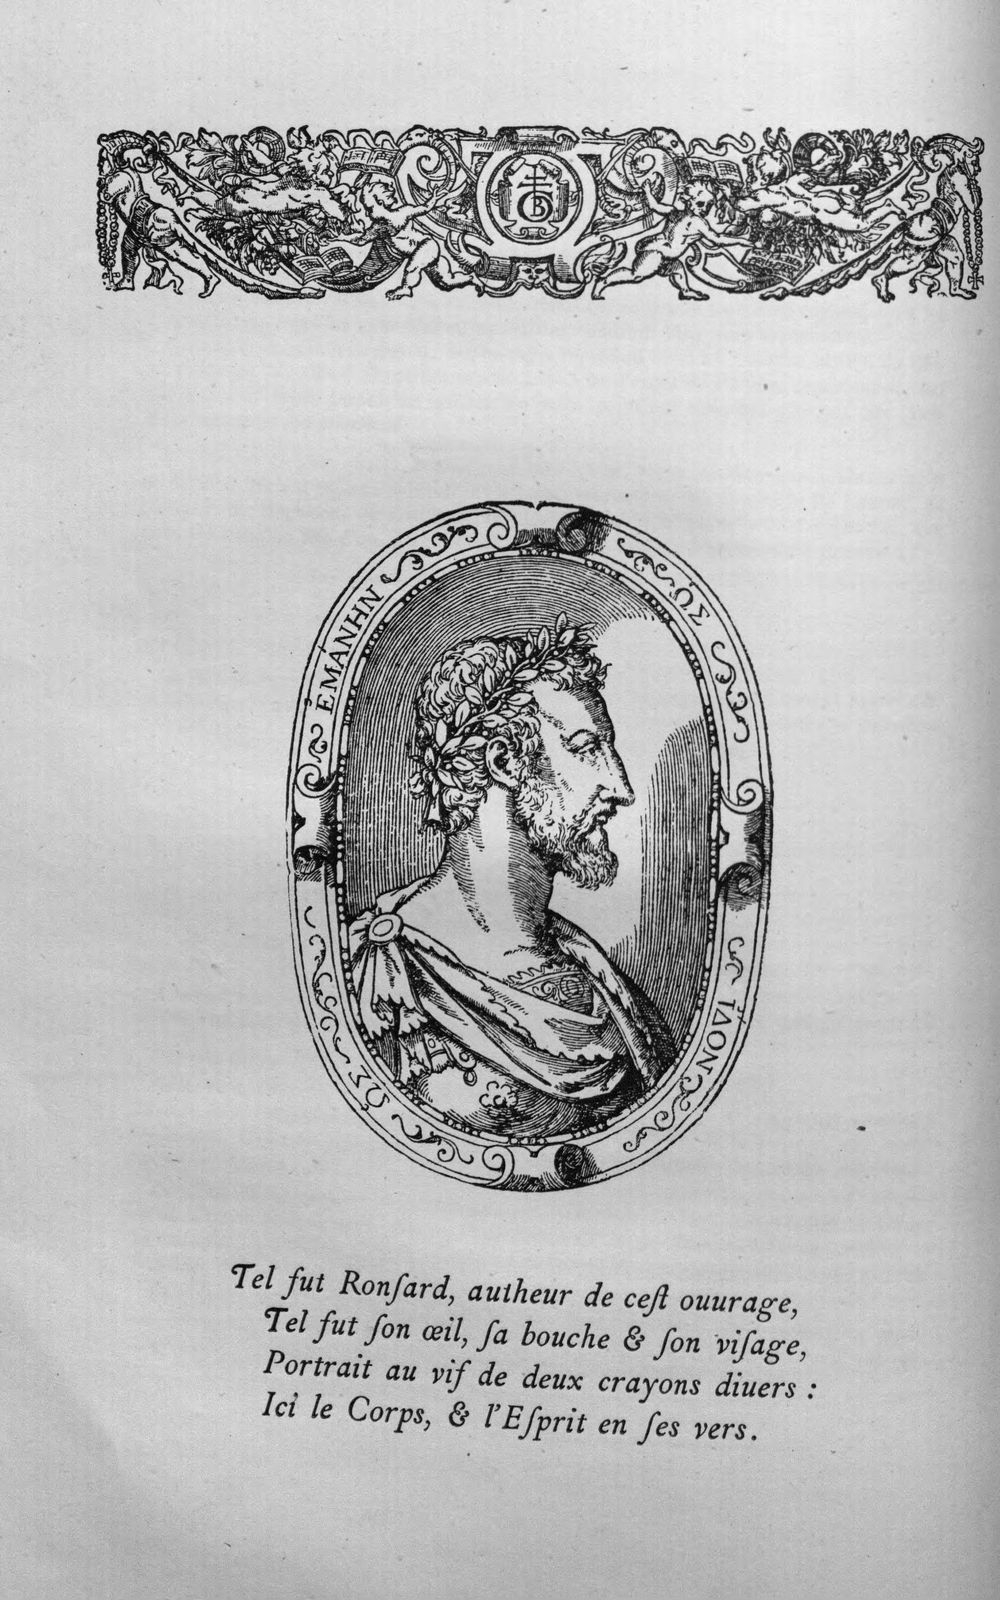 ὩΣ ἸΔΟΝ
ὩΣ ἘΜΑΝΗΝ
Tel fut Ronſard, autheur de ceſt ouurage,
Tel fut ſon œil, ſa bouche & ſon viſage,
Portrait au vif de deux crayons diuers :
Ici le Corps, & l'Eſprit en ſes vers.